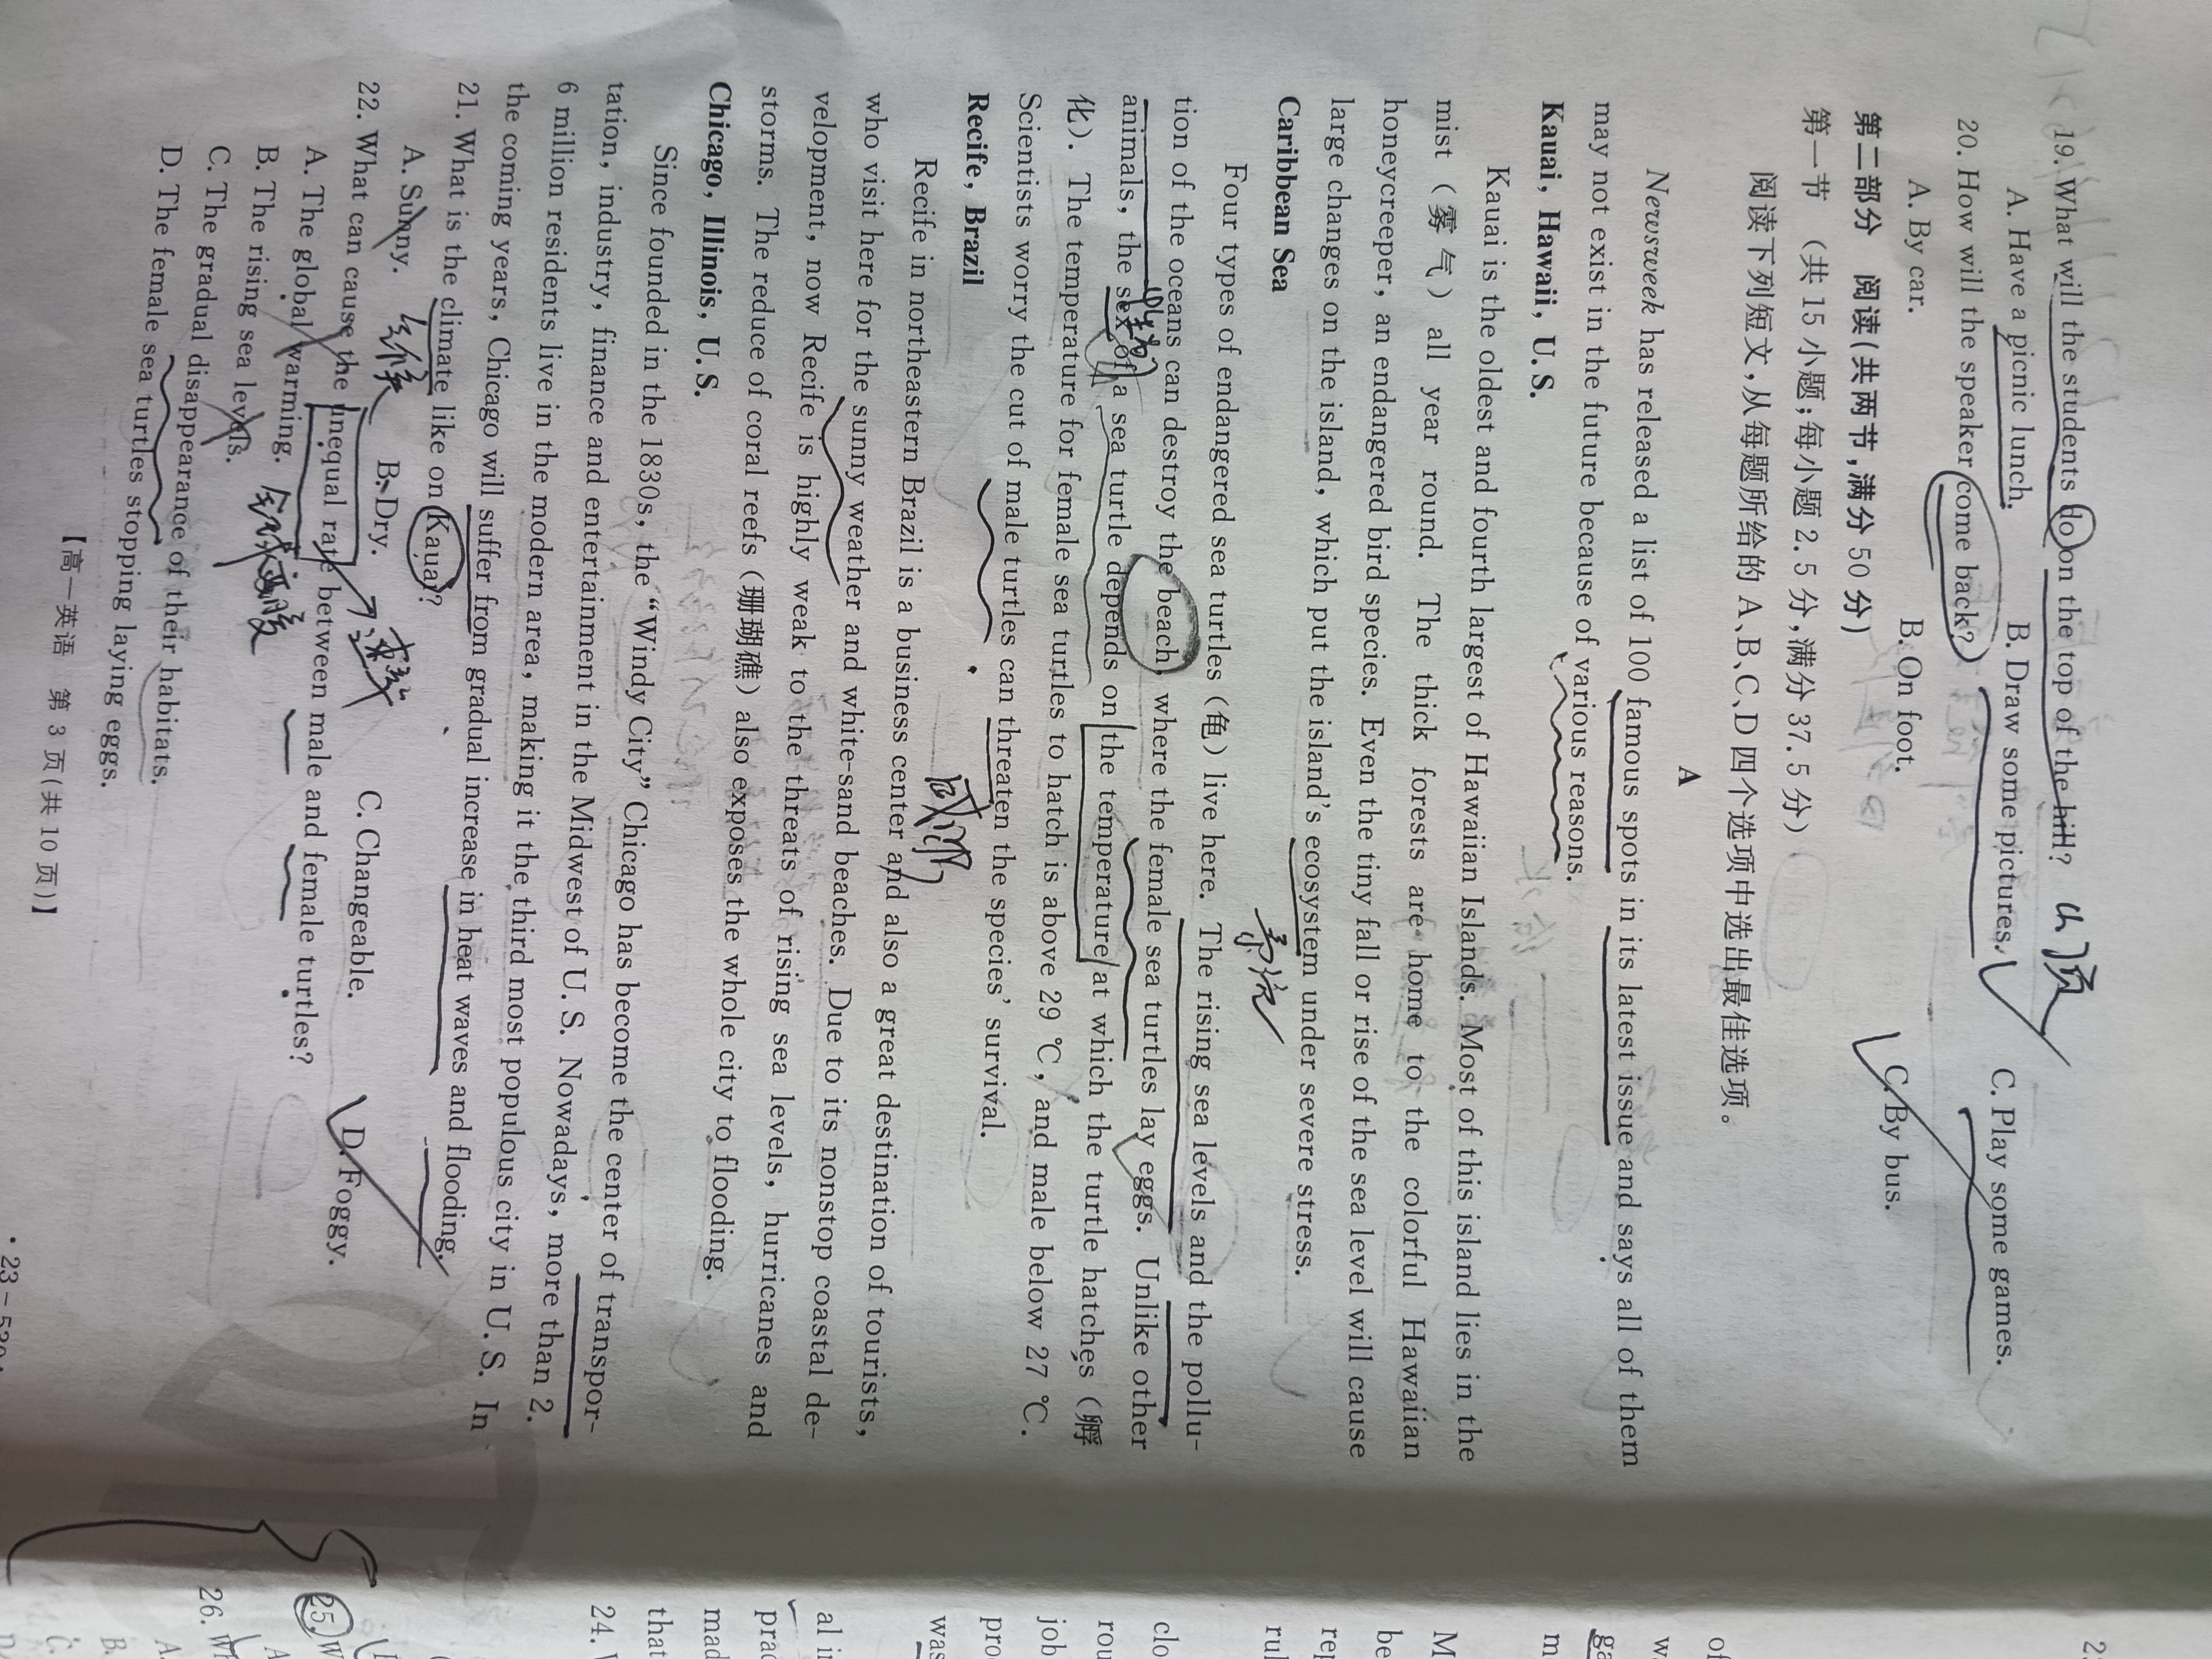 19. What will the students do on the top of the hill? 山顶
A. Have a picnic lunch. B. Draw some pictures. C. Play some games.
20. How will the speaker come back?
A. By car. B. On foot. C. By bus.
第二部分 阅读(共两节,满分 50 分)
第一节 (共 15 小题;每小题 2.5 分,满分 37.5 分)
阅读下列短文,从每题所给的 A、B、C、D 四个选项中选出最佳选项。
A
Newsweek has released a list of 100 famous spots in its latest issue and says all of them
may not exist in the future because of various reasons.
Kauai, Hawaii, U.S.
Kauai is the oldest and fourth largest of Hawaiian Islands. Most of this island lies in the
mist (雾气) all year round. The thick forests are home to the colorful Hawaiian
honeycreeper, an endangered bird species. Even the tiny fall or rise of the sea level will cause
large changes on the island, which put the island's ecosystem under severe stress.
Caribbean Sea
Four types of endangered sea turtles (龟) live here. The rising sea levels and the pollu-
tion of the oceans can destroy the beach, where the female sea turtles lay eggs. Unlike other
animals, the sex of a sea turtle depends on the temperature at which the turtle hatches (孵
化). The temperature for female sea turtles to hatch is above 29 ℃, and male below 27 ℃.
Scientists worry the cut of male turtles can threaten the species' survival.
威胁
Recife, Brazil
Recife in northeastern Brazil is a business center and also a great destination of tourists,
who visit here for the sunny weather and white-sand beaches. Due to its nonstop coastal de-
velopment, now Recife is highly weak to the threats of rising sea levels, hurricanes and
storms. The reduce of coral reefs (珊瑚礁) also exposes the whole city to flooding.
Chicago, Illinois, U.S.
Since founded in the 1830s, the "Windy City" Chicago has become the center of transpor-
tation, industry, finance and entertainment in the Midwest of U.S. Nowadays, more than 2.
6 million residents live in the modern area, making it the third most populous city in U.S. In
the coming years, Chicago will suffer from gradual increase in heat waves and flooding.
21. What is the climate like on Kauai?
A. Sunny. B. Dry. C. Changeable. D. Foggy.
22. What can cause the unequal rate between male and female turtles?
A. The global warming.
B. The rising sea levels.
C. The gradual disappearance of their habitats.
D. The female sea turtles stopping laying eggs.
【高一英语 第 3 页(共 10 页)】
24.
25.
26.